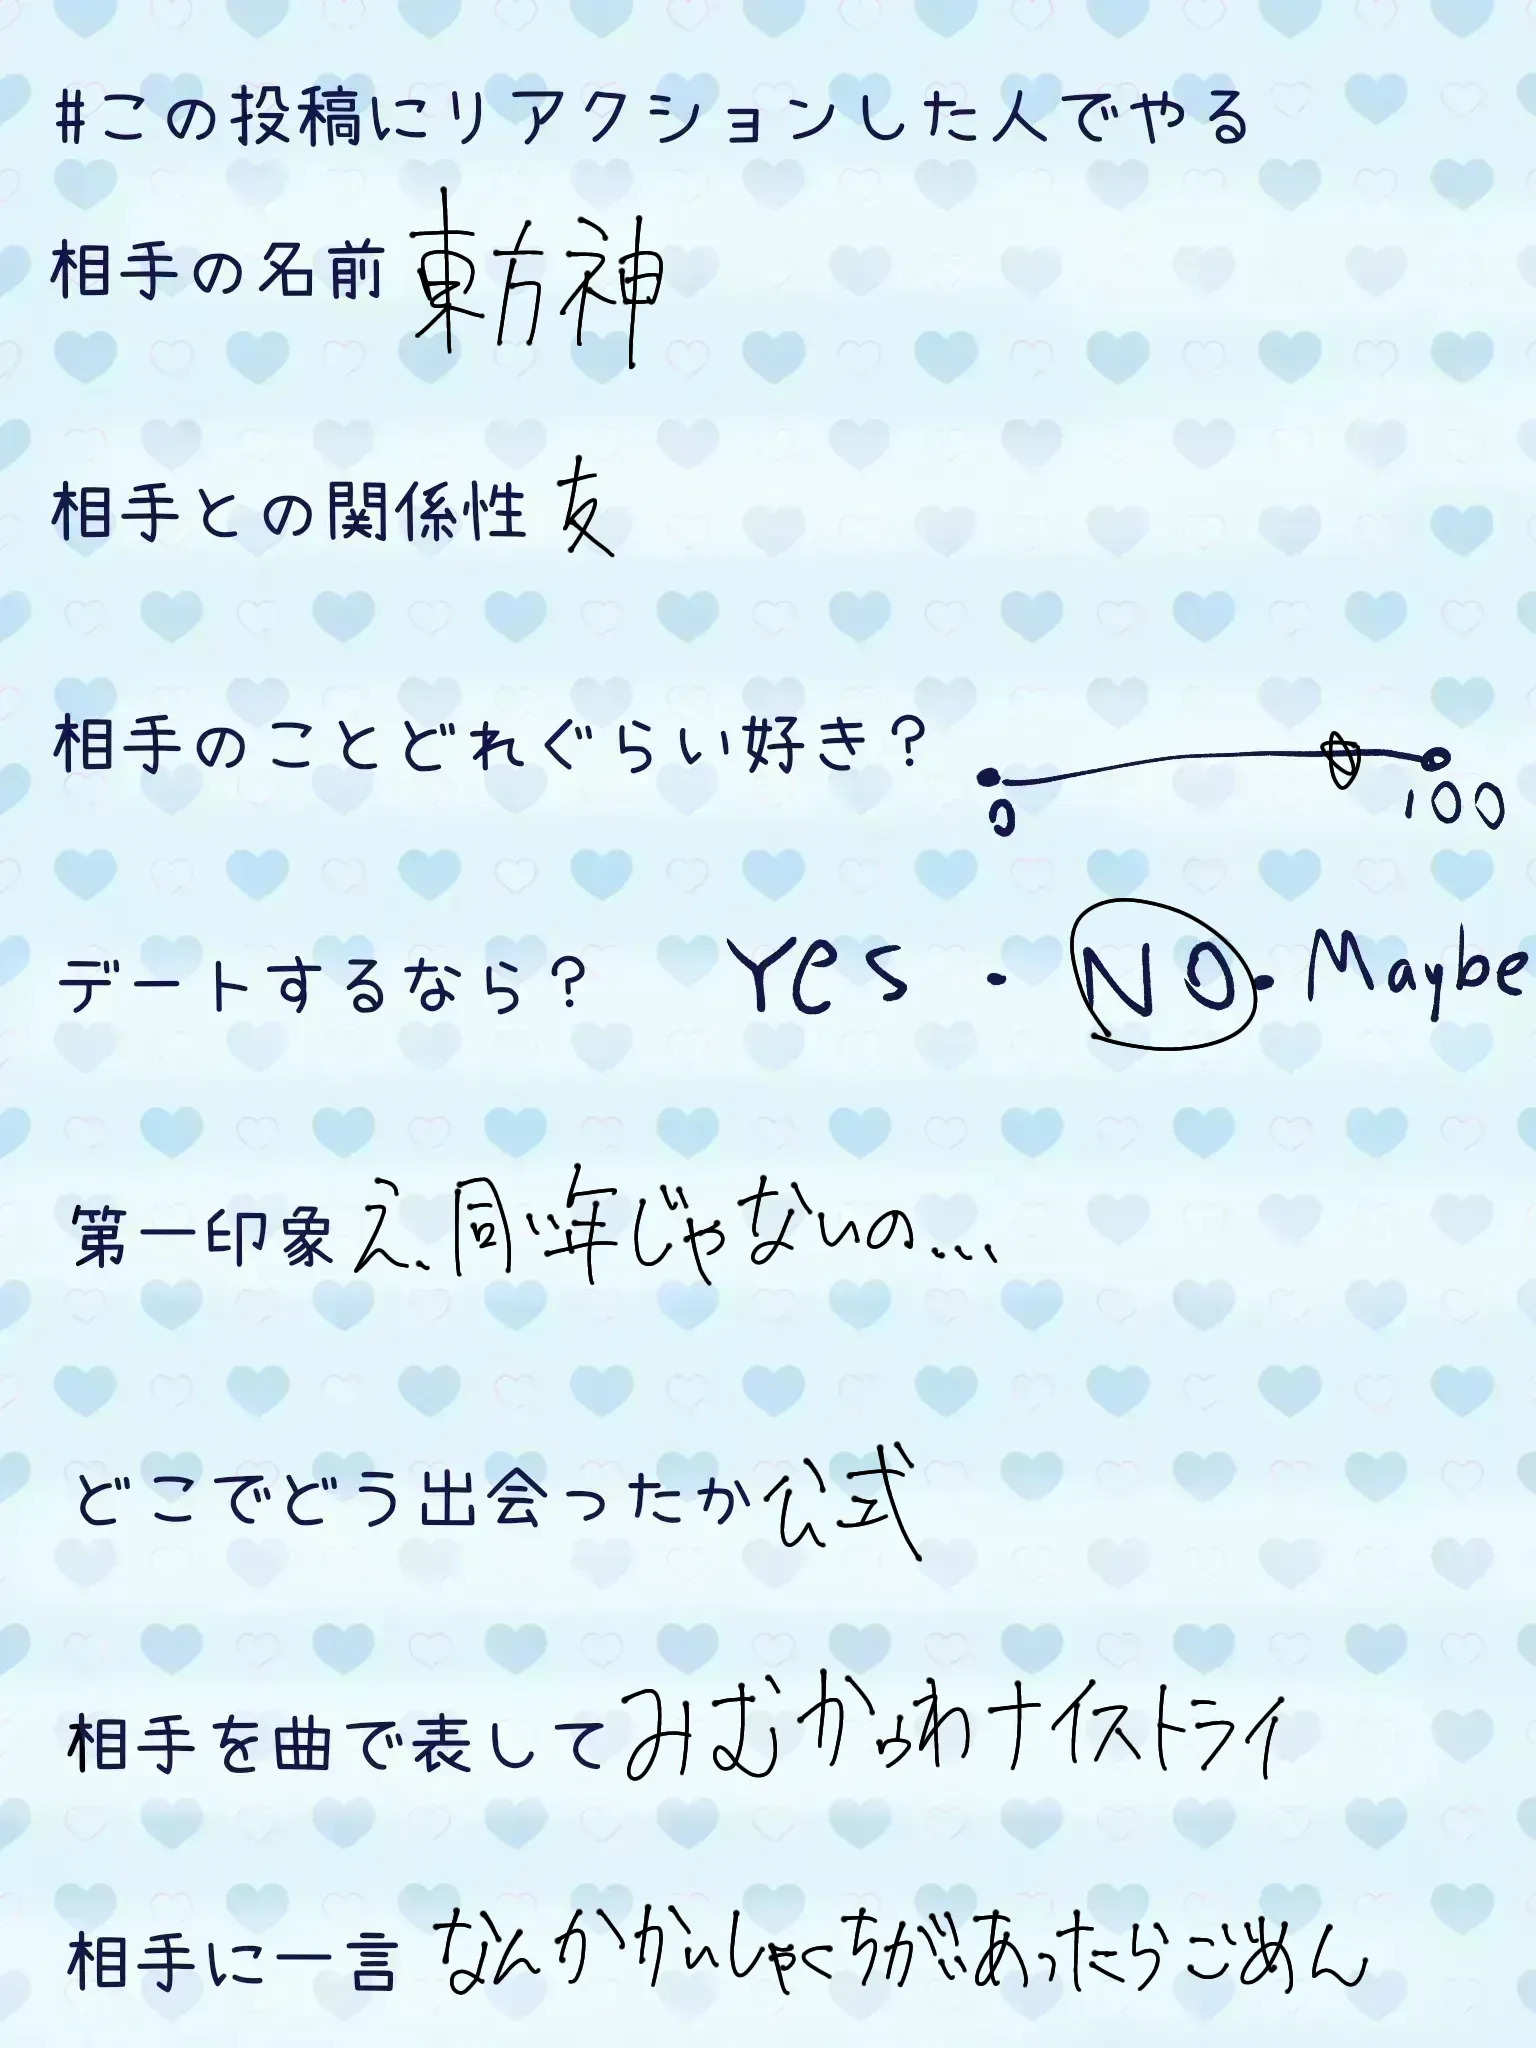 #この投稿にリアクションした人でやる
相手の名前 東方神
相手との関係性 友
相手のことどれぐらい好き？
0 100
デートするなら？ Yes・NO・Maybe
第一印象 え、同い年じゃないの...
どこでどう出会ったか 公式
相手を曲で表して みむかゥわナイストライ
相手に一言 なんかかいしゃくちがいあったらごめん